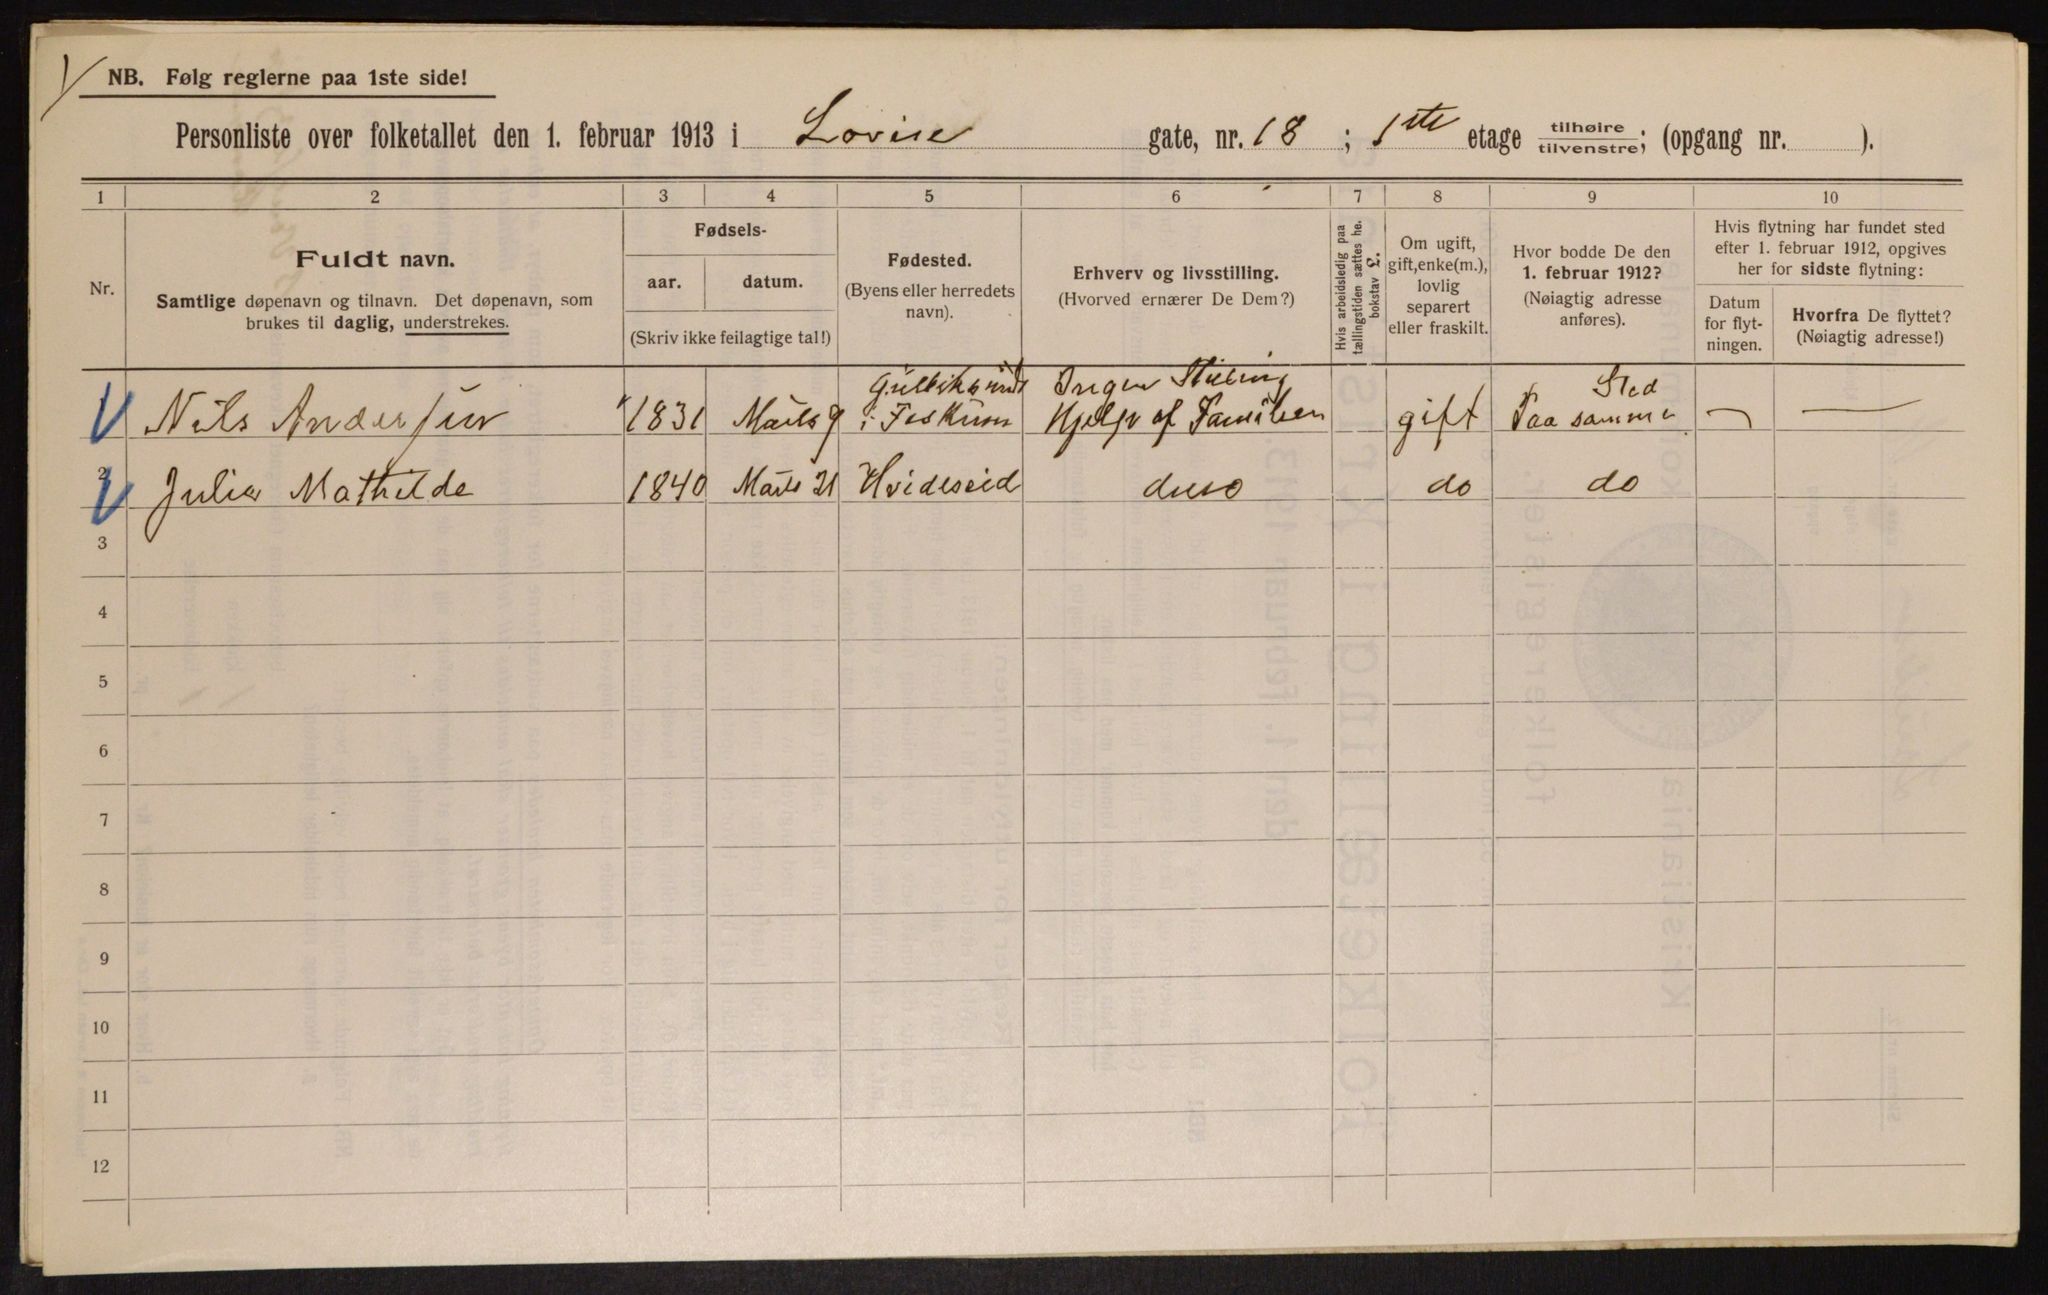 NB. Følg reglerne paa 1ste side!
Personliste over folketallet den 1. februar 1913 i Lovise gate, nr. 18 ; 1ste etage tilhøire tilvenstre ; (opgang nr. ).
1 2 3 4 5 6 7 8 9 10
Nr.
Fuldt navn.
Samtlige døpenavn og tilnavn. Det døpenavn, som
brukes til daglig, understrekes.
Fødsels-
aar. datum.
(Skriv ikke feilagtige tal!)
Fødested.
(Byens eller herredets
navn).
Erhverv og livsstilling.
(Hvorved ernærer De Dem?)
Hvis arbeidsledig paa
tællingstiden sættes he.
bokstav L.
Om ugift,
gift, enke(m.),
lovlig
separert
eller fraskilt.
Hvor bodde De den
1. februar 1912?
(Nøiagtig adresse
anføres).
Hvis flytning har fundet sted
efter 1. februar 1912, opgives
her for sidste flytning:
Datum
for flyt-
ningen.
Hvorfra De flyttet?
(Nøiagtig adresse!)
Ingen Stilling Sted
Nils Andersen 1831 Marts 9 i Hjelp af Familien gift Paa samme — —
2 Julie Mathilde 1840 Marts 21 Hvideseid do do
3
4
5
6
7
8
9
10
11
12